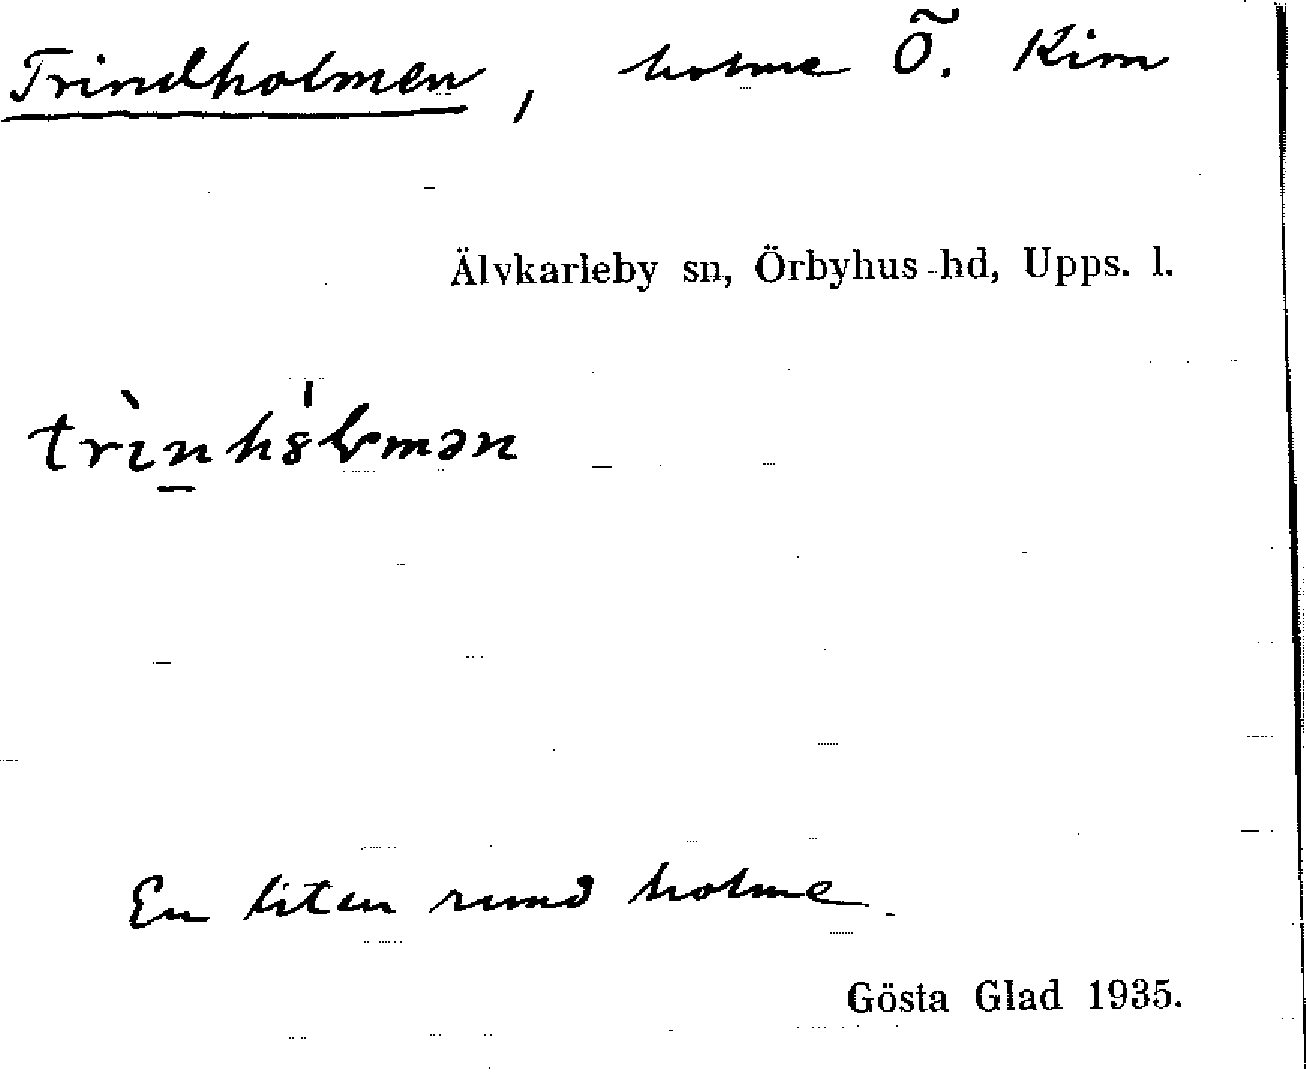 Trindholmen, holme Ö. Kim
Älvkarleby sn, Örbyhus hd, Upps. l.
En liten rund holme.
Gösta Glad 1935.